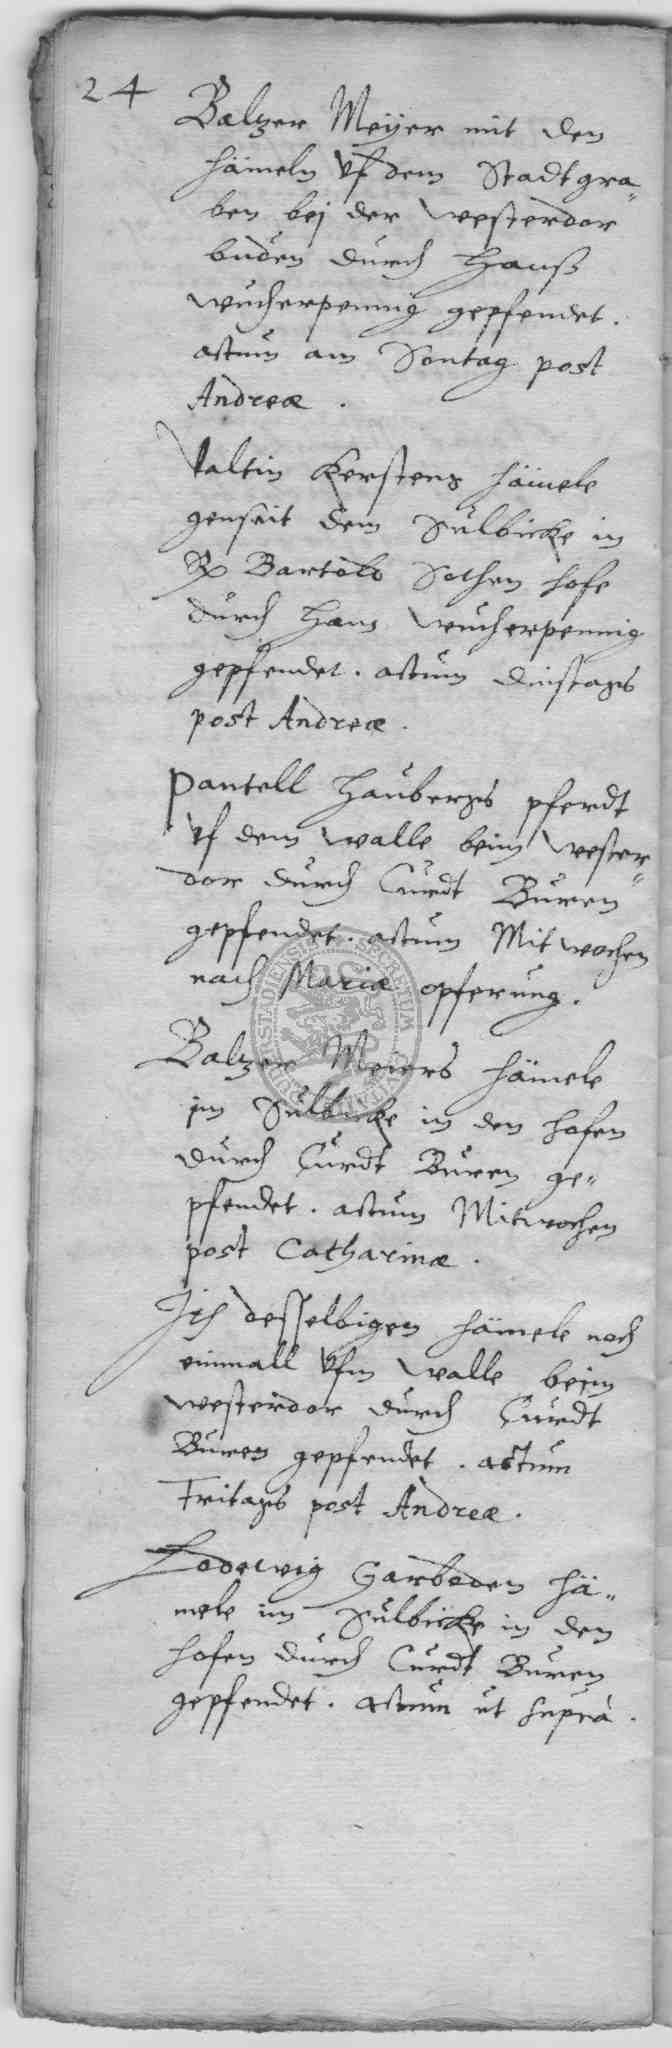 24
Baltzer Meÿer mit den
hämeln ufdem Stadtgra„
ben bej der westerdor
buden durch Hanß
wucherpennig gepfendet.
actum am Sontag post
Andreæ.
Valtin Kerstens hämele
genseit dem Sulbicke in
Bartolo Sothen hofe
durch Hans wucherpennig
gepfendet. actum dinstags
post Andreæ.
Pantell Haubergs pferdt
uf dem walle beim wester„
dor durch Curdt Buren
gepfendet. actum Mitwochen
nach Mariæ opferung.
Baltzer Meiers hämele
im Sulbicke in den hofen
durch Curdt Buren ge„
pfendet. actum Mitwochen
post Catharinæ.
desselbigen hämele noch
einmall ufm walle beim
westerdor durch Curdt
Buren gepfendet. actum
Fritags post Andreæ.
Lodewig Garboden hä„
mele im Sulbicke in den
hofen durch Curdt Buren
gepfendet. actum ut supra.